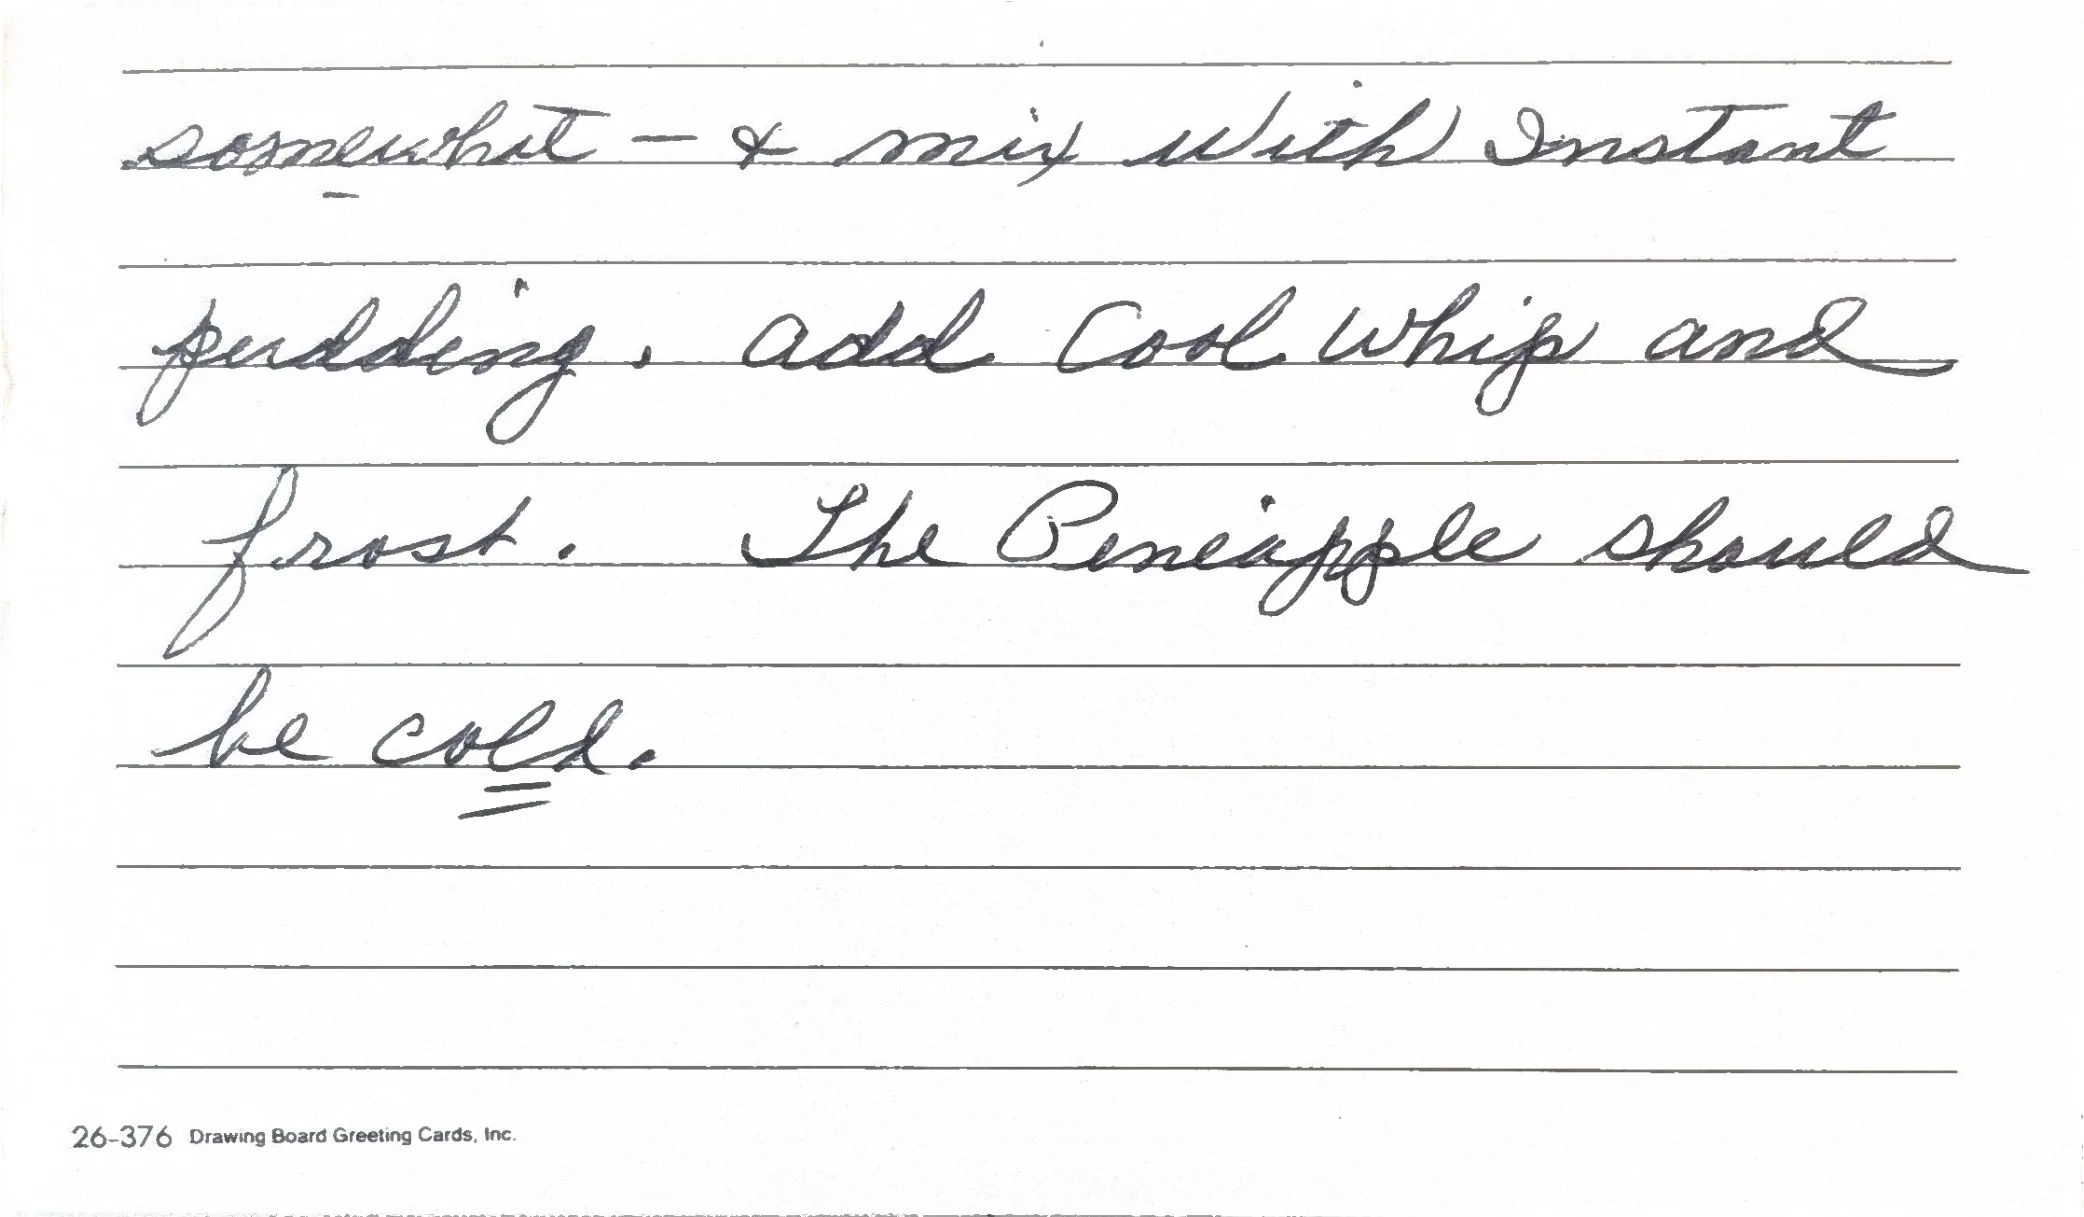 somewhat - & mix with Instant
pudding. add Cool whip and
frost. The Pineapple should
be cold.
26-376 Drawing Board Greeting Cards, Inc.